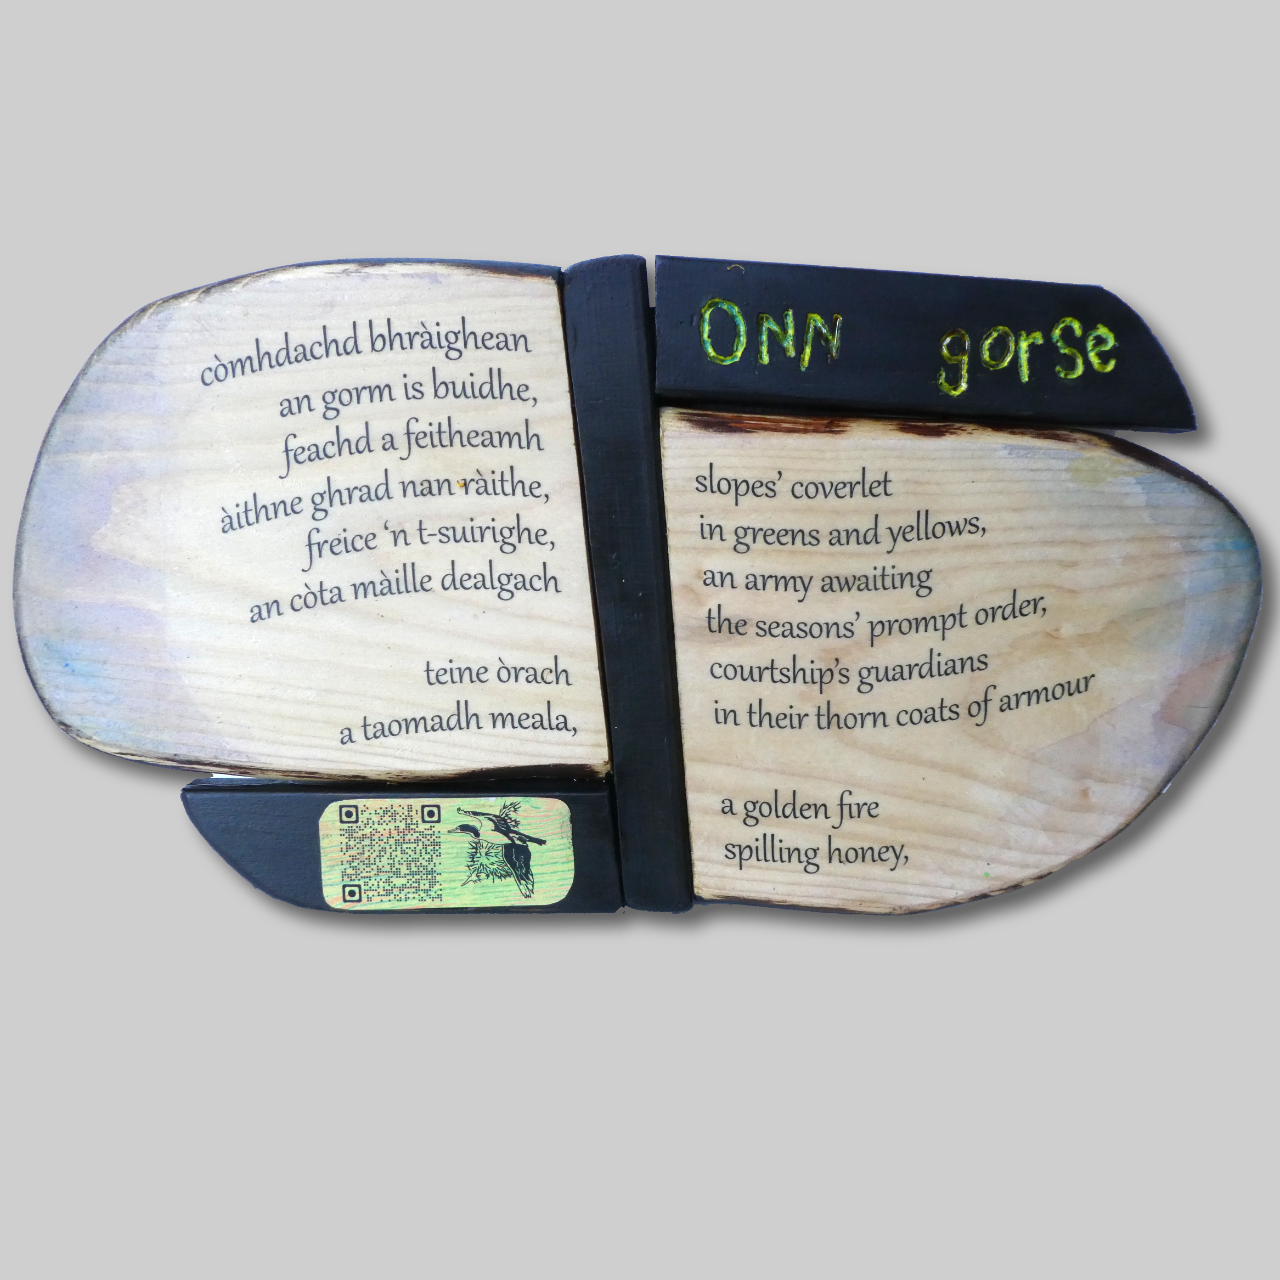 còmhdachd bhràighean
an gorm is buidhe,
feachd a feitheamh
àithne ghrad nan ràithe,
freice ‘n t-suirighe,
an còta màille dealgach
teine òrach
a taomadh meala,
Onn gorse
slopes’ coverlet
in greens and yellows,
an army awaiting
the seasons’ prompt order,
courtship’s guardians
in their thorn coats of armour
a golden fire
spilling honey,